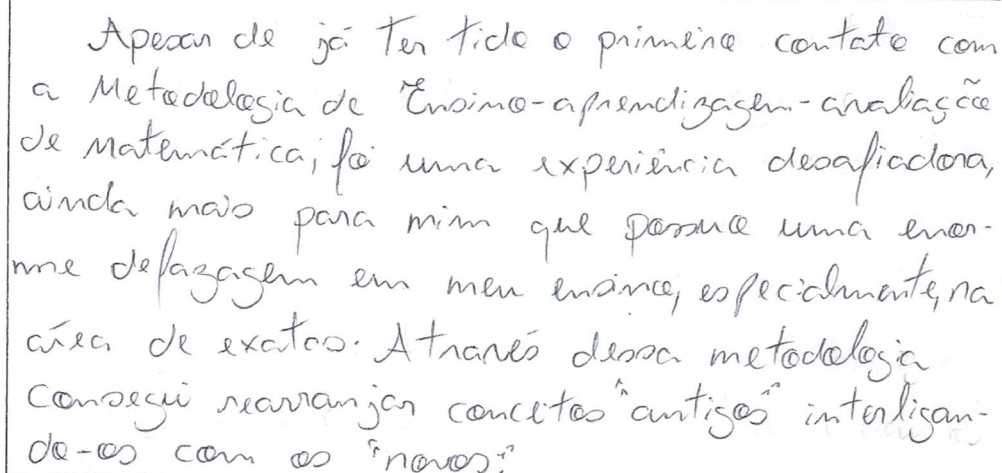 Apesar de já ter tido o primeiro contato com
a Metodologia de Ensino-aprendizagem-avaliação
de Matemática, foi uma experiência desafiadora,
ainda mais para mim que possuo uma enor-
me defazagem em meu ensino, especialmente, na
área de exatas. Através dessa metodologia
consegui rearranjar conceitos "antigos" interligan-
do-os com os "novos".